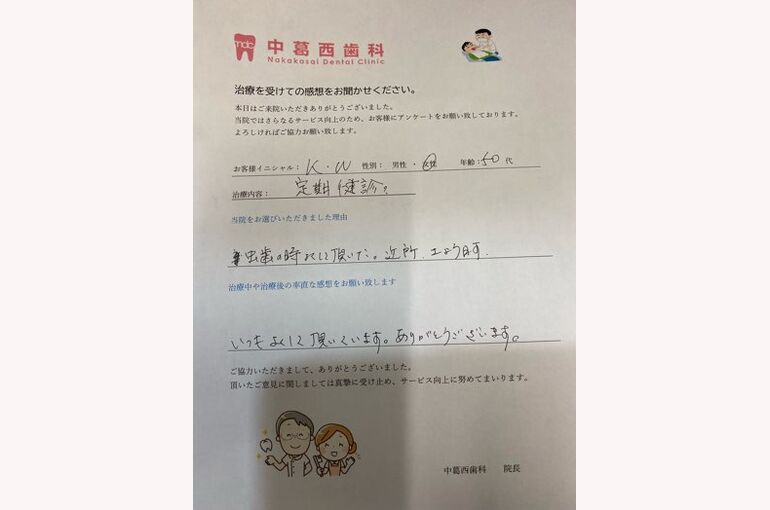 ndc 中葛西歯科
Nakakasai Dental Clinic
治療を受けての感想をお聞かせください。
本日はご来院いただきありがとうございました。
当院ではさらなるサービス向上のため、お客様にアンケートをお願い致しております。
よろしければご協力お願い致します。
お客様イニシャル： K・W 性別： 男性 ・ 女性 年齢：50 代
治療内容： 定期健診。
当院をお選びいただきました理由
虫歯の時よくして頂いた。近所、土よう日
治療中や治療後の率直な感想をお願い致します
いつもよくして頂いています。ありがとうございます。
ご協力いただきまして、ありがとうございました。
頂いたご意見に関しましては真摯に受け止め、サービス向上に努めてまいります。
中葛西歯科 院長